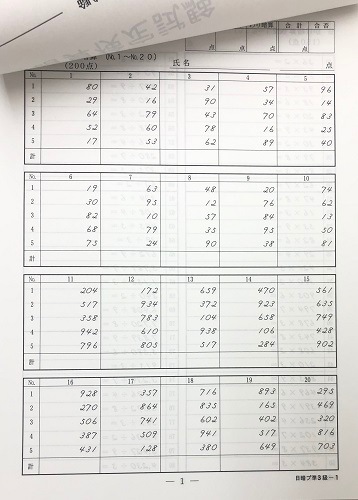 合計 合否
点 点 点
(No.1~No.20) 氏名
(200点) 点
No. 1 2 3 4 5
1 80 42 31 57 96
2 29 16 90 34 14
3 64 79 43 70 83
4 52 60 78 16 25
5 17 53 62 89 40
計
No. 6 7 8 9 10
1 19 63 48 20 74
2 30 95 12 76 62
3 82 10 57 84 13
4 68 79 35 95 50
5 75 24 90 38 81
計
No. 11 12 13 14 15
1 204 172 659 470 561
2 517 934 372 923 635
3 358 783 104 658 749
4 942 610 938 106 428
5 796 805 517 284 902
計
No. 16 17 18 19 20
1 928 357 716 893 295
2 270 864 835 165 469
3 506 741 602 402 320
4 387 509 941 517 816
5 431 128 380 649 703
計
— 1 —
日暗プ準3級-1